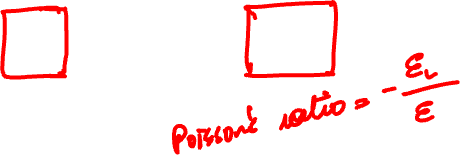 Poisson's ratio = - ε_L / ε